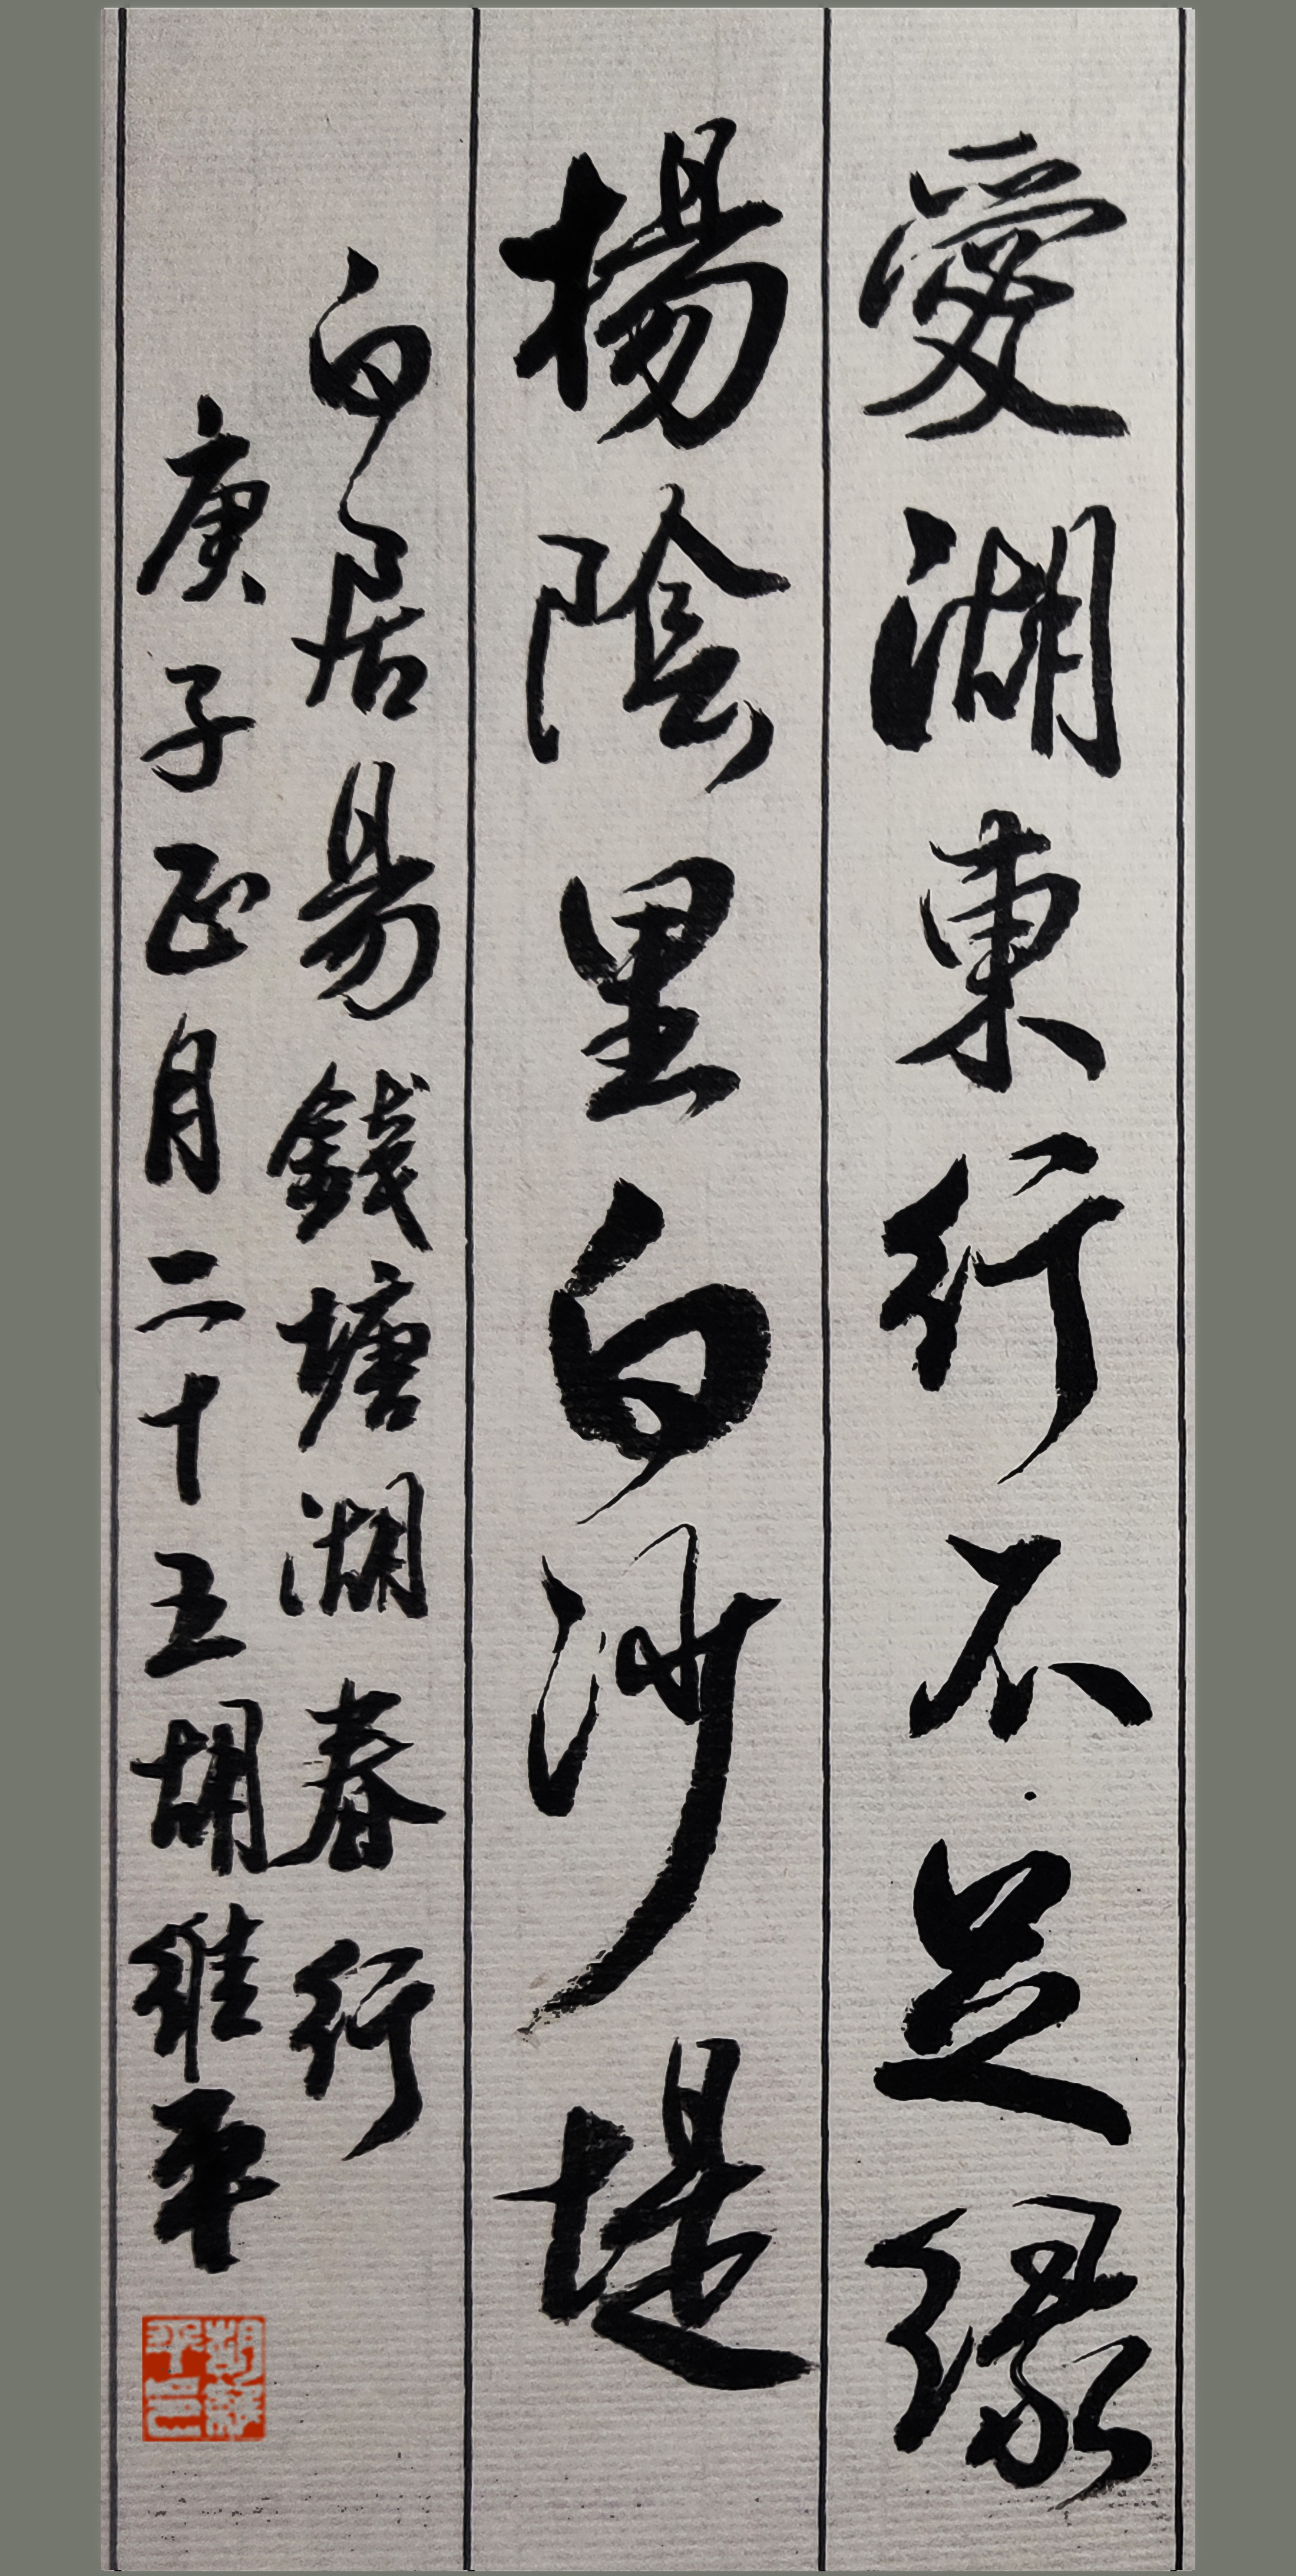 愛湖東行不足緑
揚陰里白沙堤
白居易錢塘湖春行
庚子正月二十五胡維平
胡維平印